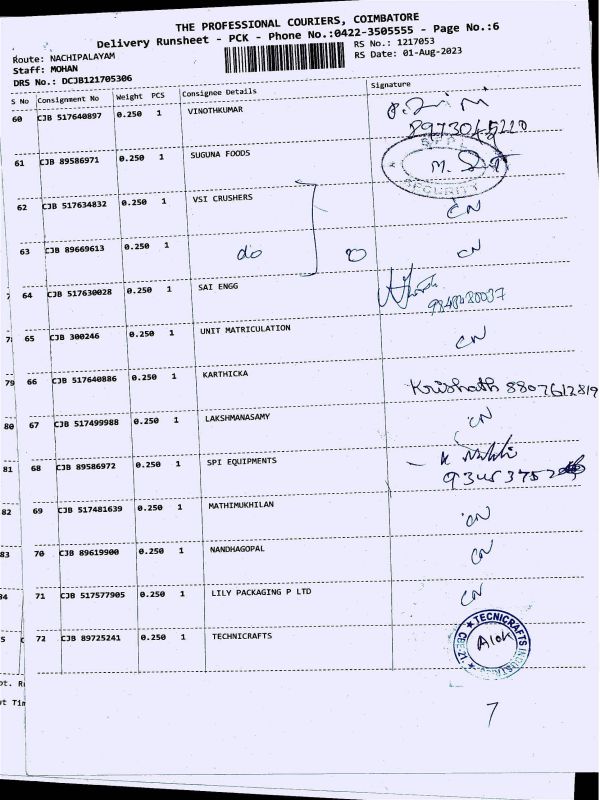 THE PROFESSIONAL COURIERS, COIMBATORE
Delivery Runsheet - PCK - Phone No.:0422-3505555 - Page No.:6
Route: NACHIPALAYAM
RS No.: 1217053
Staff: MOHAN
RS Date: 01-Aug-2023
DRS No.: DCJB121705306
S No Consignment No Weight PCS Consignee Details Signature
60 CJB 517640897 0.250 1 VINOTHKUMAR
61 CJB 89586971 0.250 1 SUGUNA FOODS
SFPL
SECURITY
62 CJB 517634832 0.250 1 VSI CRUSHERS CN
63 CJB 89669613 0.250 1 do CN
7 64 CJB 517630028 0.250 1 SAI ENGG
7 65 CJB 300246 0.250 1 UNIT MATRICULATION CN
79 66 CJB 517640886 0.250 1 KARTHICKA
8807612819
80 67 CJB 517499988 0.250 1 LAKSHMANASAMY CN
81 68 CJB 89586972 0.250 1 SPI EQUIPMENTS
82 69 CJB 517481639 0.250 1 MATHIMUKHILAN CN
83 70 CJB 89619900 0.250 1 NANDHAGOPAL CN
84 71 CJB 517577905 0.250 1 LILY PACKAGING P LTD CN
5 72 CJB 89725241 0.250 1 TECHNICRAFTS
TECNICRAFTS
Alok
pt. R
t Tim
7